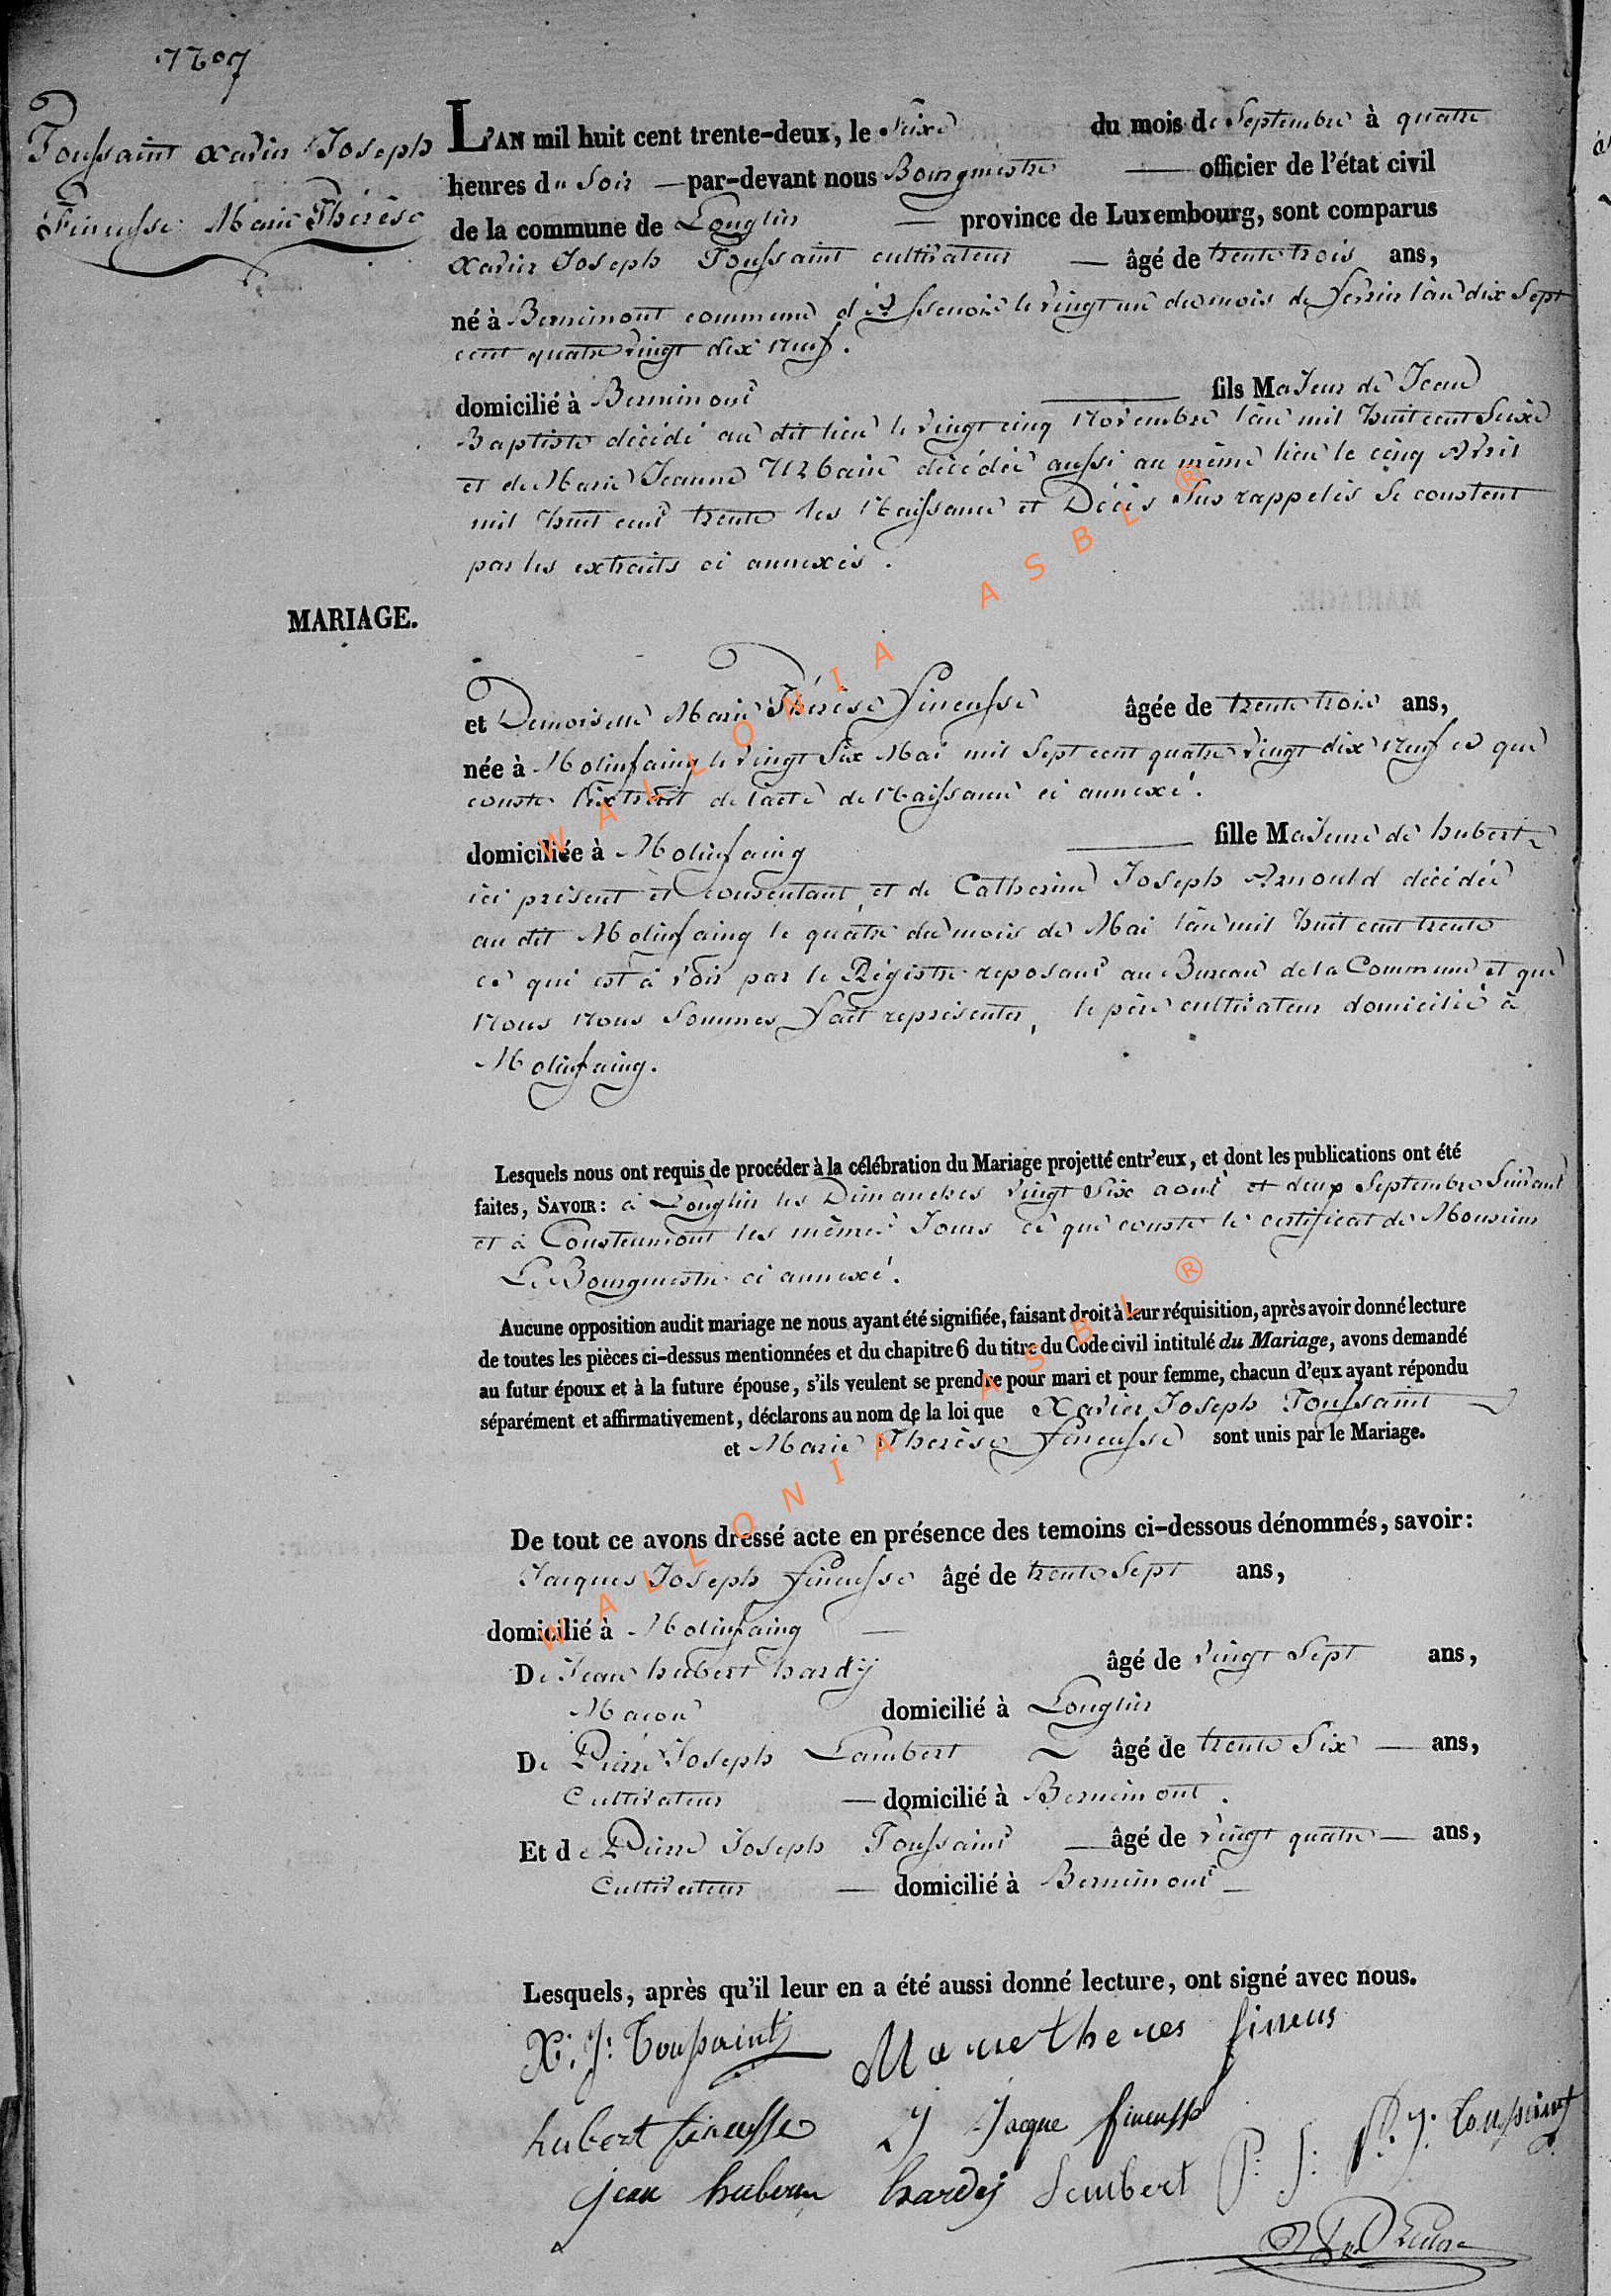 N.º 7
Toussaint Xavier Joseph
Fineusse Marie Thérèse
L'AN mil huit cent trente-deux, le Seize du mois de Septembre à quatre
heures du Soir — par-devant nous Bourgmestre — officier de l'état civil
de la commune de Longlier — province de Luxembourg, sont comparus
Xavier Joseph Toussaint cultivateur — âgé de trente trois ans,
né à Bernimont commune d'Assenois le vingt un du mois de fevrier l'an dix Sept
cent quatre vingt dix neuf.
domicilié à Bernimont — fils Majeur de Jean
Baptiste décédé au dit lieu le vingt cinq Novembre l'an mil huit cent Seize
et de Marie Jeanne Urbain décédée aussi au même lieu le cinq Avril
mil huit cent trente les Naissance et Décès Sus rappelés Se constent
par les extraits ci annexés.
MARIAGE.
et Demoiselle Marie Thérèse fineusse âgée de trente trois ans,
née à Molinfaing le vingt Six Mai mil Sept cent quatre vingt dix neuf ce que
conste l'extrait de l'acte de Naissance ci annexé.
domiciliée à Molinfaing — fille Majeure de hubert
ici présent et consentant, et de Catherine Joseph Arnould décédée
au dit Molinfaing le quatre du mois de Mai l'an mil huit cent trente
ce qui est à voir par le Régistre reposant au Bureau de la Commune et que
Nous Nous Sommes fait représenter, le père cultivateur domicilié à
Molinfaing.
Lesquels nous ont requis de procéder à la célébration du Mariage projetté entr'eux, et dont les publications ont été
faites, SAVOIR: à Longlier les Dimanches vingt Six aout et deux Septembre Suivant
et à les mêmes Jours ce que conste le certificat de Monsieur
Le Bourgmestre ci annexé.
Aucune opposition audit mariage ne nous ayant été signifiée, faisant droit à leur réquisition, après avoir donné lecture
de toutes les pièces ci-dessus mentionnées et du chapitre 6 du titre du Code civil intitulé du Mariage, avons demandé
au futur époux et à la future épouse, s'ils veulent se prendre pour mari et pour femme, chacun d'eux ayant répondu
séparément et affirmativement, déclarons au nom de la loi que Xavier Joseph Toussaint
et Marie Therèse fineusse sont unis par le Mariage.
De tout ce avons dressé acte en présence des temoins ci-dessous dénommés, savoir:
Jacques Joseph fineusse âgé de trente Sept ans,
domicilié à Molinfaing —
De Jean hubert hardÿ âgé de vingt Sept ans,
Macon domicilié à Longlier
De Pierre Joseph Lambert âgé de trente Six — ans,
Cultivateur — domicilié à Bernimont.
Et de Pierre Joseph Toussaint — âgé de vingt quatre — ans,
Cultivateur — domicilié à Bernimont —
Lesquels, après qu'il leur en a été aussi donné lecture, ont signé avec nous.
X: J: Toussaint Marie theres fineus
hubert fineusse J Jacque fineusse P: J: Toussaint
jean hubert hardÿ Lembert P: J:
WALLONIA ASBL ®
WALLONIA ASBL ®